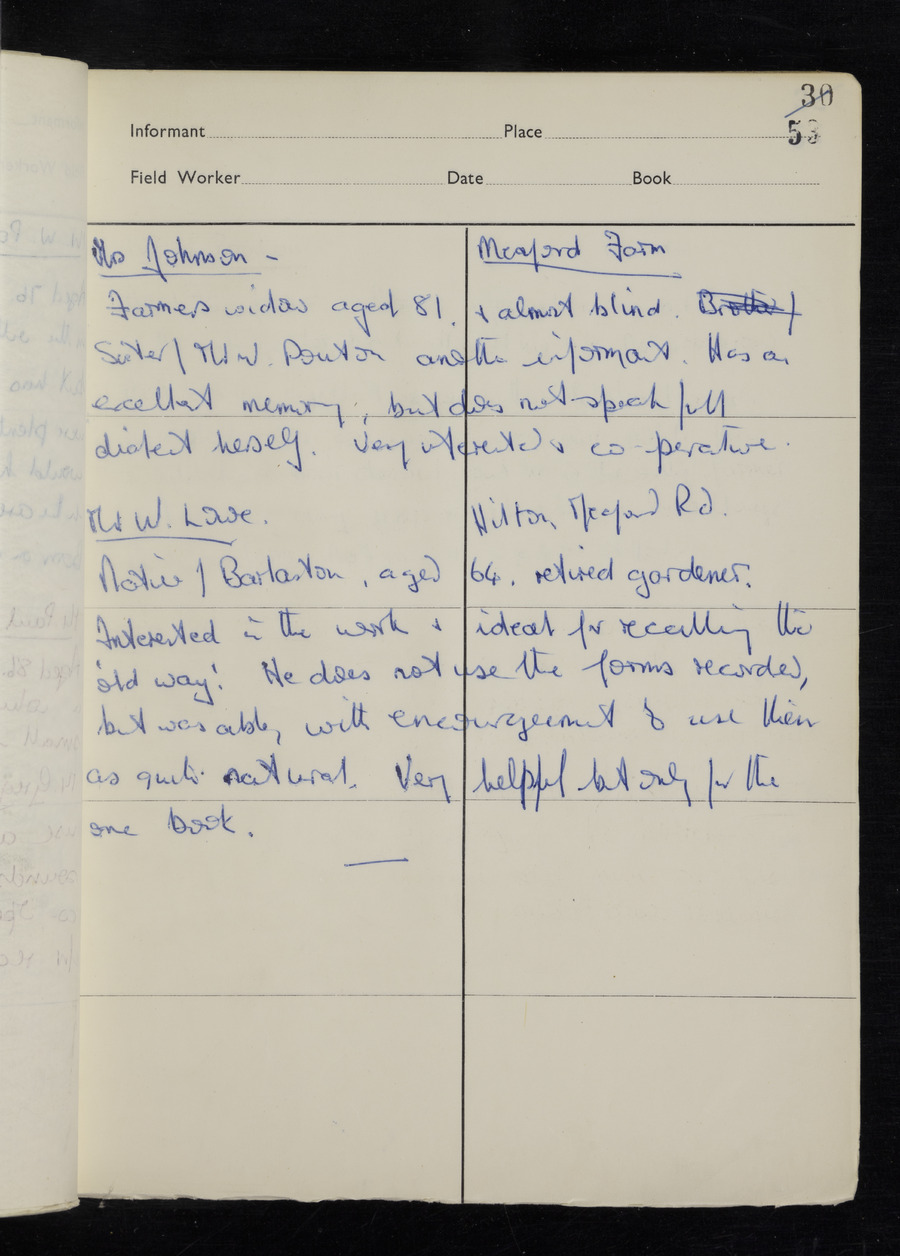 30
Informant Place 53
Field Worker Date Book
Mrs Johnson - Meaford Farm
Farmers widow aged 81. & almost blind. Brother/
Sister/ Mr W. Pouton another informant. Has an
excellent memory, but does not speak full
dialect herself. Very interested & co-perative.
Mr W. Lowe. Hilton, Meaford Rd.
Native/ Barlaston, aged 64. retired gardener.
Interested in the work & ideal for recalling the
'old way'. He does not use the forms recorded,
but was able, with encouragement to use them
as quite natural. Very helpful but only for the
one book.